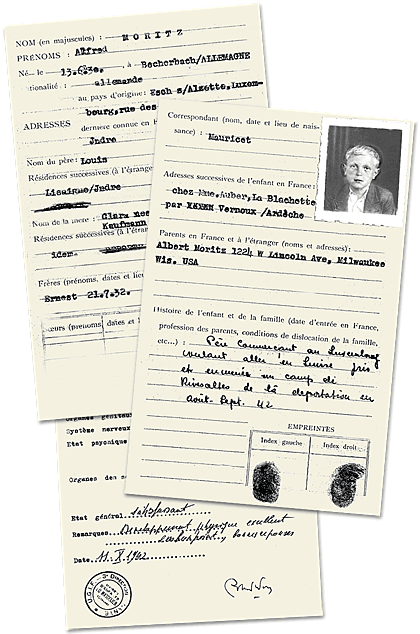 NOM (en majuscules) : MORITZ
PRÉNOMS : Alfred
Né... le 13.6.30. , à Becherbach/ALLEMAGNE
ationalité : allemande
au pays d'origine: Esch s/Alzette, Luxem-
bourg, rue des
ADRESSES
derniere connue en
Indre
Nom du père: Louis
Résidences successives (à l'étranger
/Indre
Nom de la mere : Clara nee
Kaufmann
Résidences successives (à l'étranger
idem
Frères (prénoms, dates et lieu
Ernest 21.7.32.
sœurs (prénoms, dates et l
Correspondant (nom, date et lieu de nais-
sance) : Mauricet
Adresses successives de l'enfant en France :
chez Mme. Auber, La Blachette
par Vernoux /Ardêche
Parents en France et à l'étranger (noms et adresses):
Albert Moritz 1224 W Lincoln Ave, Milwaukee
Wis. USA
Histoire de l'enfant et de la famille (date d'entrée en France,
profession des parents, conditions de dislocation de la famille,
etc...) : Père commerçant au Luxembourg
voulant aller en Suisse pris
et emmenés au camp de
Rivesaltes de là deportation en
août-Sept. 42
EMPREINTES
Index gauche
Index droit
Organes génitaux
Système nerveux
Etat psychique
Organes des s
Etat général satisfaisant
Remarques Développement physique excellent
Date 11.X.1942
U.G.I.F. - 3e Direction